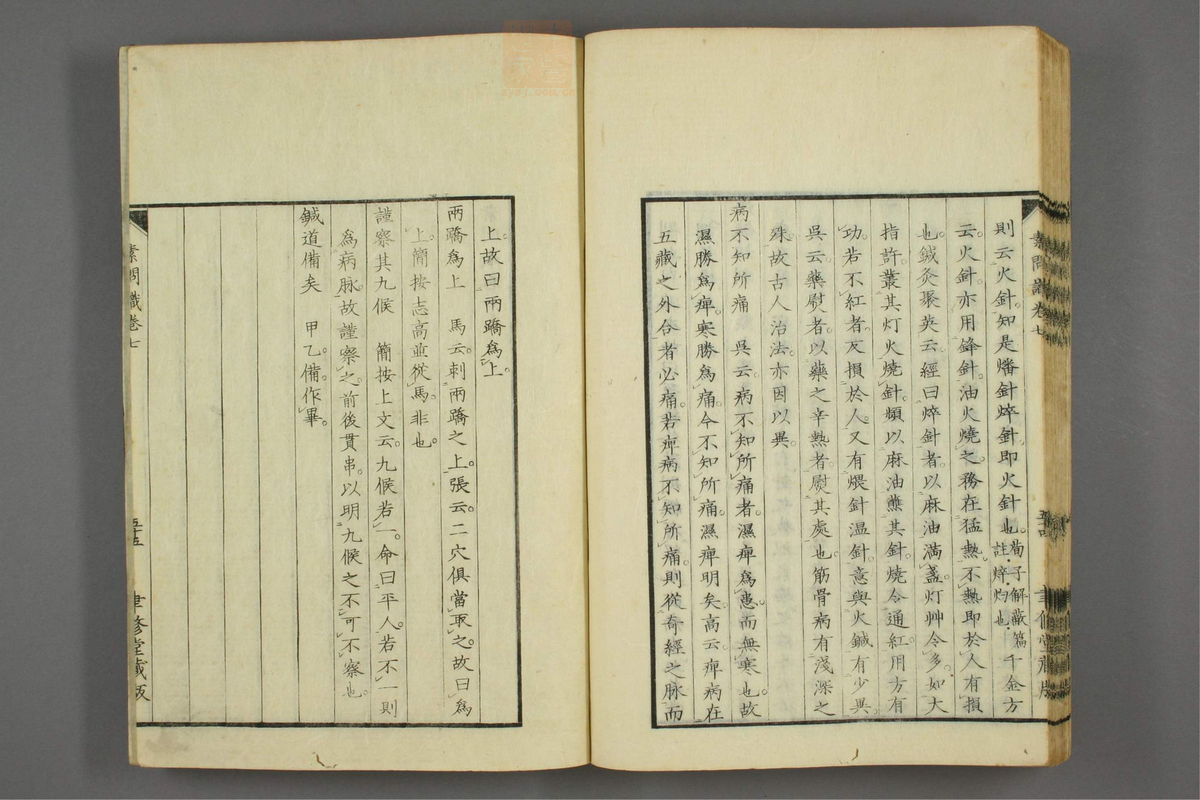 則云火針。知是燔針焠針。即火針也。荀子解蔽篇註焠灼也。千金方
云。火針。亦用鋒針。油火燒之。務在猛熱。不熱即於人有損
也。鍼灸聚英云。經曰焠針者。以麻油滿盞。灯艸令多。如大
指許。叢其灯火燒針。頻以麻油蘸其針。燒令通紅。用方有
功。若不紅者。反損於人。又有煨針温針。意與火鍼有少異。
呉云。藥熨者。以藥之辛熱者。熨其處也。筋骨病有淺深之
殊。故古人治法。亦因以異。
病不知所痛　呉云。病不知所痛者。濕痺爲患。而無寒也。故
濕勝爲痺。寒勝爲痛。今不知所痛。濕痺明矣。高云。痺病在
五藏之外合者必痛。若痺病不知所痛。則從奇經之脉。而
上。故曰兩蹻爲上。
兩蹻爲上　馬云。刺兩蹻之上。張云。二穴俱當取之。故曰爲
上。簡按志高並從馬。非也。
謹察其九候　簡按上文云。九候若一。命曰平人。若不一則
爲病脉。故謹察之。前後貫串。以明九候之不可不察也。
鍼道備矣　甲乙。備。作畢。
素問識卷七
五十五
聿修堂藏版
素問識卷七